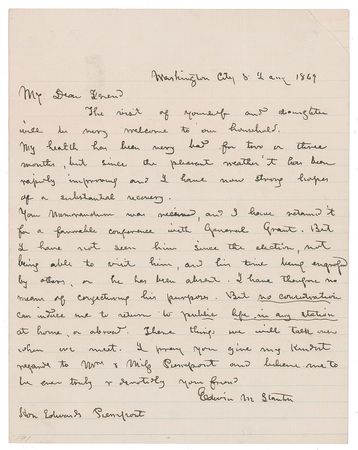 Washington City 8 Jany 1869
My Dear Friend
The visit of yourself and daughter
will be very welcome to our household.
My health has been very bad for two or three
months, but since the pleasant weather it has been
rapidly improving and I have now strong hopes
of a substantial recovery.
Your Memorandum was received, and I have retained it
for a favorable conference with General Grant. But
I have not seen him since the election, not
being able to visit him, and his time being engaged
by others, or he has been absent. I have therefore no
means of conjecturing his purposes. But no consideration
can induce me to return to public life in any station
at home, or abroad. These things we will talk over
when we meet. I pray you give my kindest
regards to Mrs & Miss Pierrepont and believe me to
be ever truly & devotedly your friend
Edwin M Stanton
Hon Edwards Pierrepont